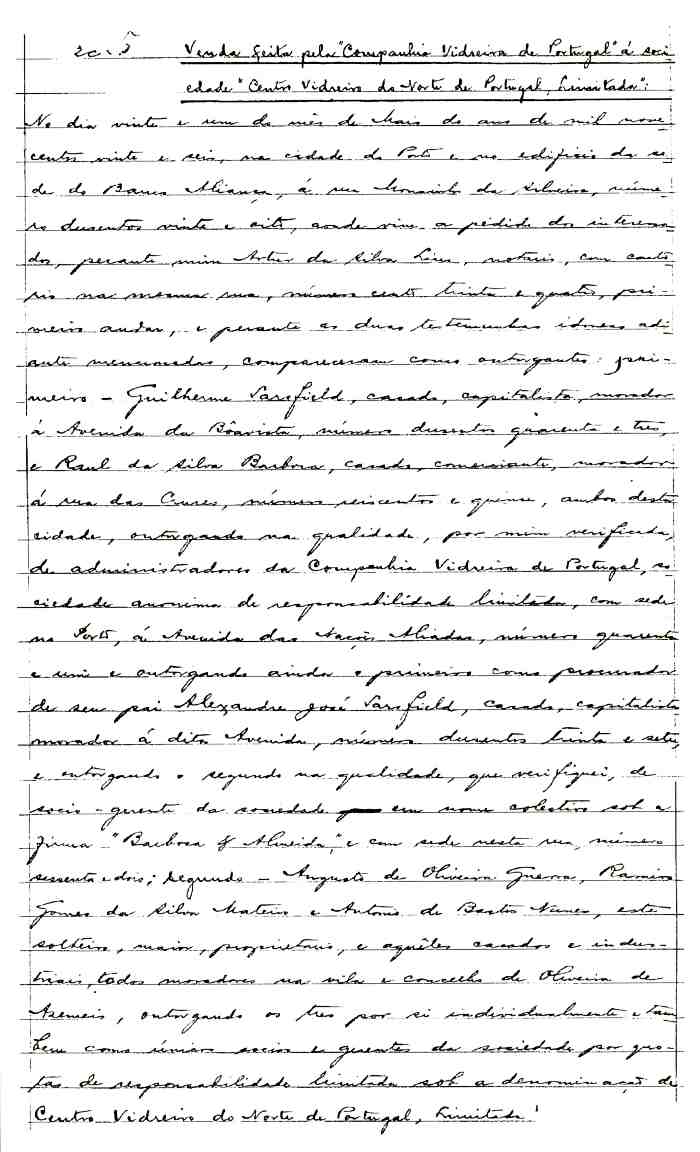 Venda feita pela "Companhia Vidreira de Portugal" á soci
edade "Centro Vidreiro do Norte de Portugal, Limitada":
No dia vinte e um do mês de Maio do ano de mil nove
centos vinte e seis, na cidade do Porto e no edificio da sé-
de do Banco Aliança, á rua Mousinho da Silveira, núme
ro dusentos vinte e oito, aonde vim a pedido dos interessa
dos, perante mim Artur da Silva Lima, notario, com carto
rio na mesma rua, número cento trinta e quatro, pri-
meiro andar, e perante as duas testemunhas idoneas adi
ante mencionadas, compareceram como outorgantes: pri-
meiro - Guilherme Sarsfield, casado, capitalista, morador
á Avenida da Bôavista, número dusentos quarenta e três,
e Raul da Silva Barbosa, casado, comerciante, morador
á rua das Cruzes, número seiscentos e quinze, ambos desta
cidade, outorgando na qualidade, por mim verificada,
de administradores da Companhia Vidreira de Portugal, so
ciedade anonima de responsabilidade limitada, com sede
no Porto, á Avenida das Nações Aliadas, número quarenta
e um e outorgando ainda o primeiro como procurador
de seu pai Alexandre José Sarsfield, casado, capitalista
morador á dita Avenida, número dusentos trinta e sete,
e outorgando o segundo na qualidade, que verifiquei, de
socio-gerente da sociedade em nome colectivo sob a
firma "Barbosa & Almeida", e com sede nesta rua, número
sessenta e dois; segundo - Augusto de Oliveira Guerra, Ramiro
Gomes da Silva Mateiro e Antonio de Bastos Nunes, este
solteiro, maior, proprietario, e aquêles casados e indus-
triais, todos moradores na vila e concelho de Oliveira de
Azemeis, outorgando os tres por si individualmente e tam
bem como únicos socios e gerentes da sociedade por quo-
tas de responsabilidade limitada sob a denominação de
Centro Vidreiro do Norte de Portugal, Limitada